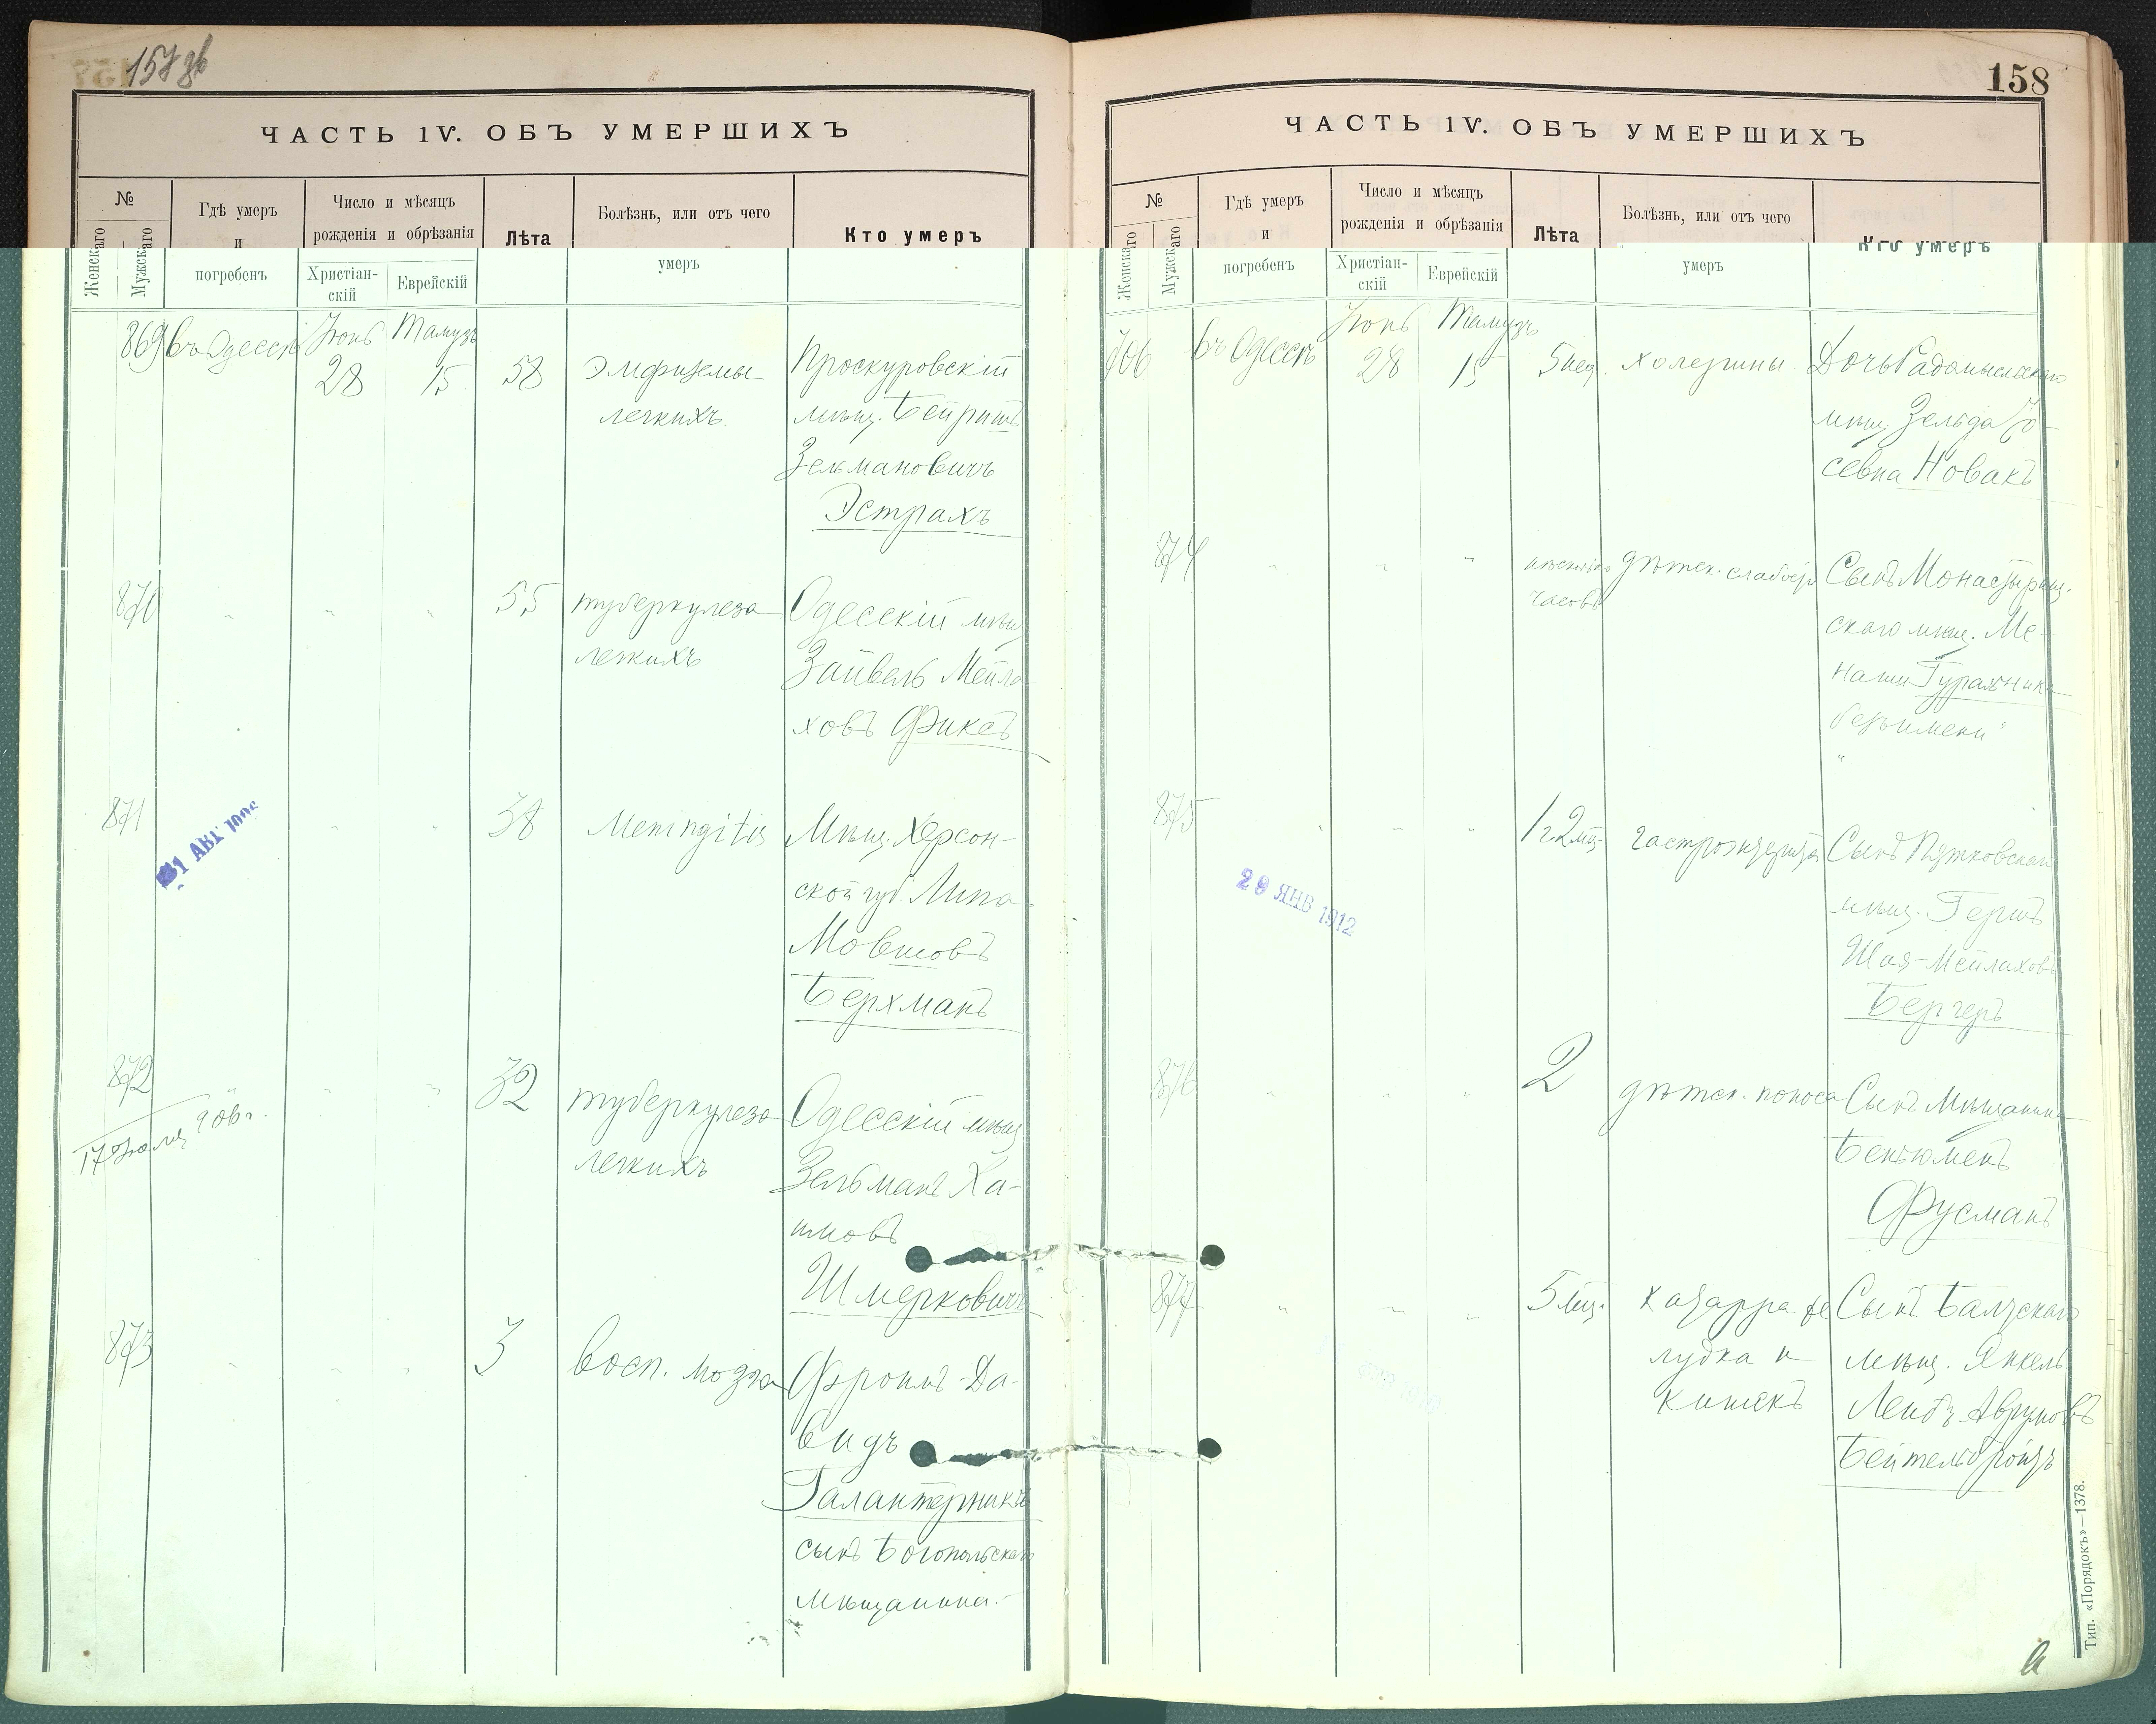 157 об
ЧАСТЬ IV. ОБЪ УМЕРШИХЪ
№
Женскаго
Мужскаго
Гдѣ умеръ
и
погребенъ
Число и мѣсяцъ
рожденія и обрѣзанія
Христіан-
скій
Еврейскій
Лѣта
Болѣзнь, или отъ чего
умеръ
Кто умеръ
869 въ Одессѣ Іюнь Тамузъ
28 15 58 Эмфиземы
легкихъ
Проскуровскій
мѣщ. Бейришъ
Зельмановичъ
Эстрахъ
870 " " " 55 туберкулеза
легкихъ
Одесскій мѣщ
Зайвель Мейла-
ховъ Фиксъ
871 " " 38 Meningitis
Мѣщ. Херсон-
ской губ. Липа
Мовшовъ
Берхманъ
31 АВГ
872 " " " 32 туберкулеза
легкихъ
Одесскій мѣщ
Зельманъ Ха-
имовъ
Шмерковичъ
873 " " " 3 восп. мозга
Фроимъ-Да-
видъ
Галантерникъ
сынъ Богопольскаго
мѣщанина.
158
ЧАСТЬ IV. ОБЪ УМЕРШИХЪ
№
Женскаго
Мужскаго
Гдѣ умеръ
и
погребенъ
Число и мѣсяцъ
рожденія и обрѣзанія
Христіан-
скій
Еврейскій
Лѣта
Болѣзнь, или отъ чего
умеръ
Кто умеръ
706 въ Одессѣ Іюнь Тамузъ
28 15 5 нед. холерины
Дочь Радомысльскаго
мѣщ. Зельда Іо-
севна Новакъ
874 " " " нѣсколько
часовъ
дѣтск. слабости
Сынъ Монастырищ-
скаго мѣщ. Ме-
наши Гуральника
"безъ имени"
875 " " " 1 г 2 мц. гастроэнтерита
Сынъ Пятковскаго
мѣщ. Гершъ
Шая-Мейлаховъ
Бергеръ
29 ЯНВ 1912
876 " " " 2 дѣтск. поноса
Сынъ Мѣщанина
Беньюменъ
Фусманъ
877 " " " 5 мц. катарра же
лудка и
кишекъ
Сынъ Балтскаго
мѣщ. Янкель
Лейбъ Аврумовъ
Бейтельбройтъ
Тип. «Порядокъ»—1378.